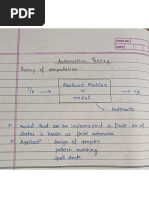 PAGE NO.
DATE
Automation Theory
Theory of computation
I/p → Abstract Machine → O/p
or
model
Automata
Model that can be implemented in finite no of
states is known as finite automata.
Applicant design of compiler
pattern matching
spell check.